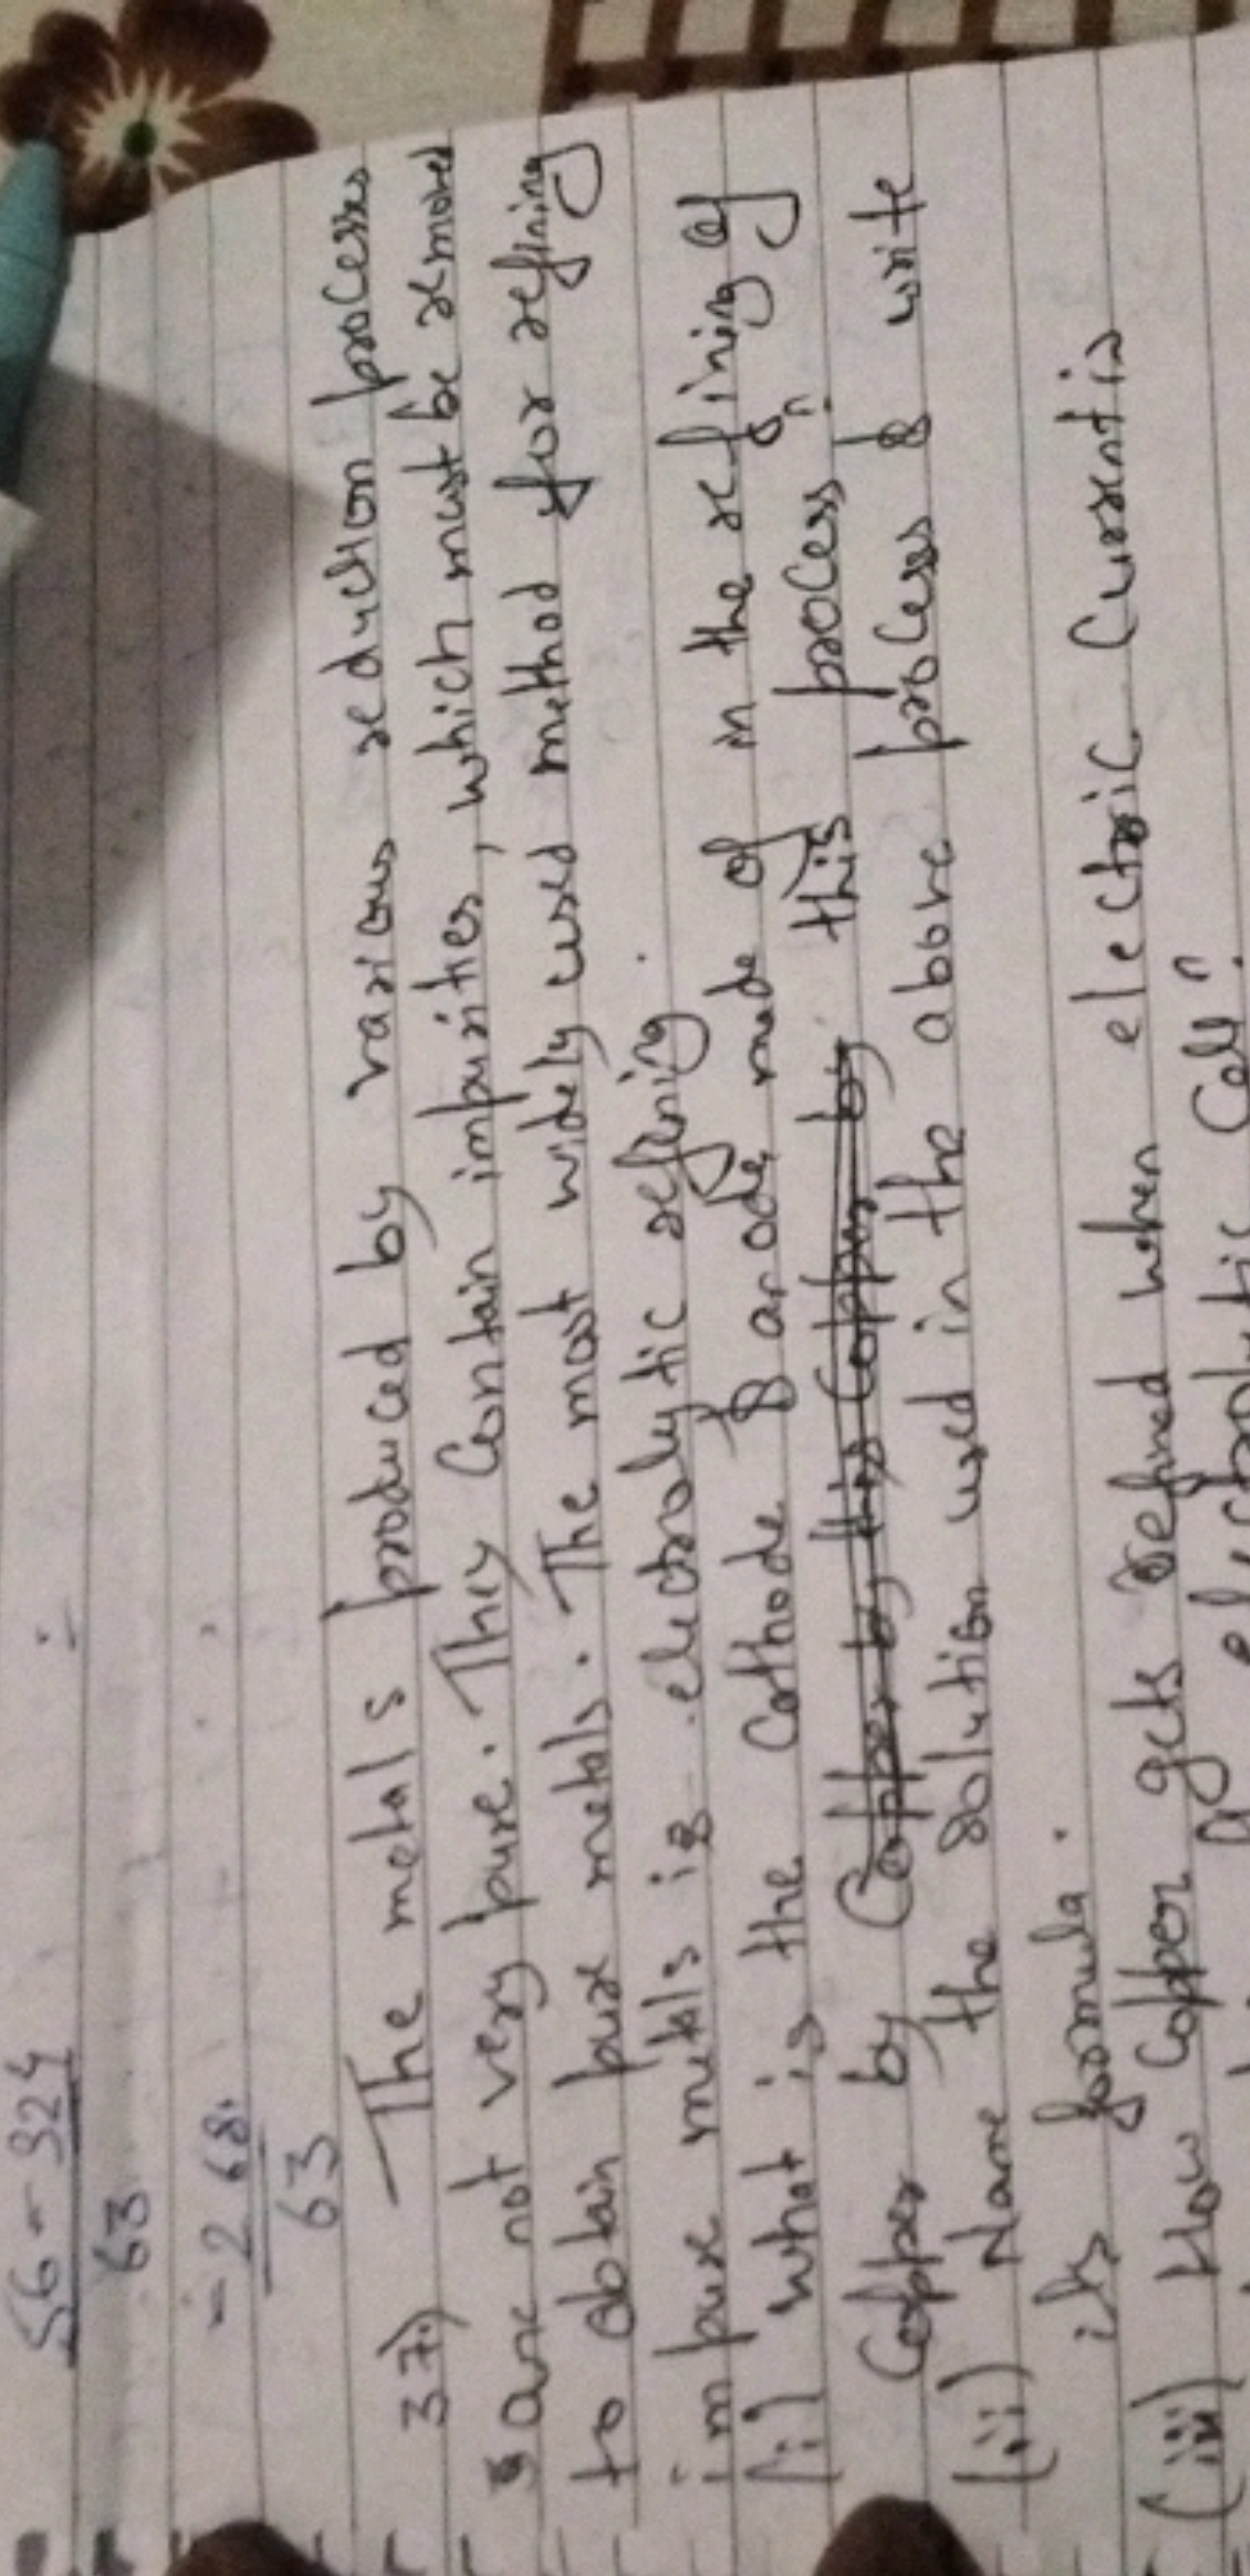 56-324
63
-268
63
37) The metals produced by various reduction processes
are not very pure. They Contain impurities, which must be removed
to obtain pure metals. The most widely used method for refining
impure metals is electrolytic refining.
(i) What is the Cathode & anode made of in the refining of
Copper by this process?
(ii) Name the solution used in the above process & write
its formula.
(iii) How Copper gets refined when electric Current is
electrolytic Cell?